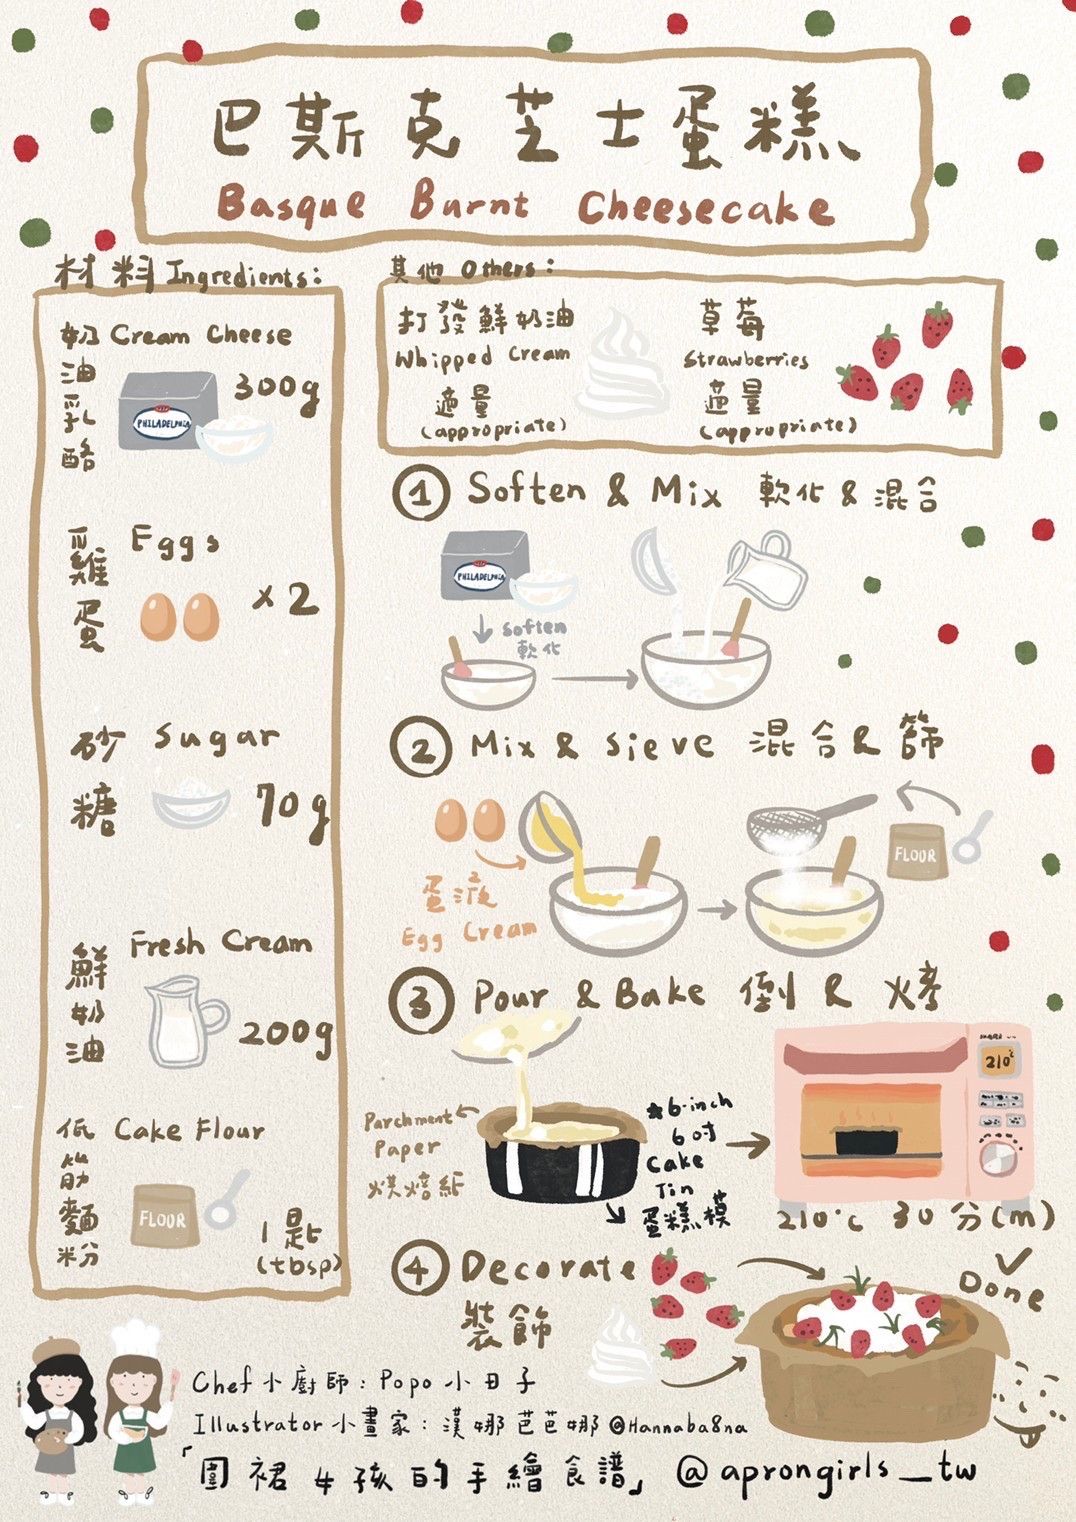 巴斯克芝士蛋糕
Basque Burnt Cheesecake
材料 Ingredients:
奶油乳酪 Cream Cheese
PHILADELPHIA
300g
雞蛋 Eggs
x2
砂糖 Sugar
70g
鮮奶油 Fresh Cream
200g
低筋麵粉 Cake Flour
FLOUR
1匙
(tbsp)
其他 Others:
打發鮮奶油
Whipped Cream
適量
(appropriate)
草莓
Strawberries
適量
(appropriate)
① Soften & Mix 軟化&混合
PHILADELPHIA
soften
軟化
② Mix & Sieve 混合&篩
蛋液
Egg Cream
FLOUR
③ Pour & Bake 倒&烤
Parchment
Paper
烘焙紙
*6-inch
6吋
Cake
Tin
蛋糕模
210°c
210°c 30分(m)
④ Decorate
裝飾
Done
Chef小廚師:Popo小日子
Illustrator小畫家:漢娜芭芭娜@Hannaba8na
「圍裙女孩的手繪食譜」@aprongirls_tw